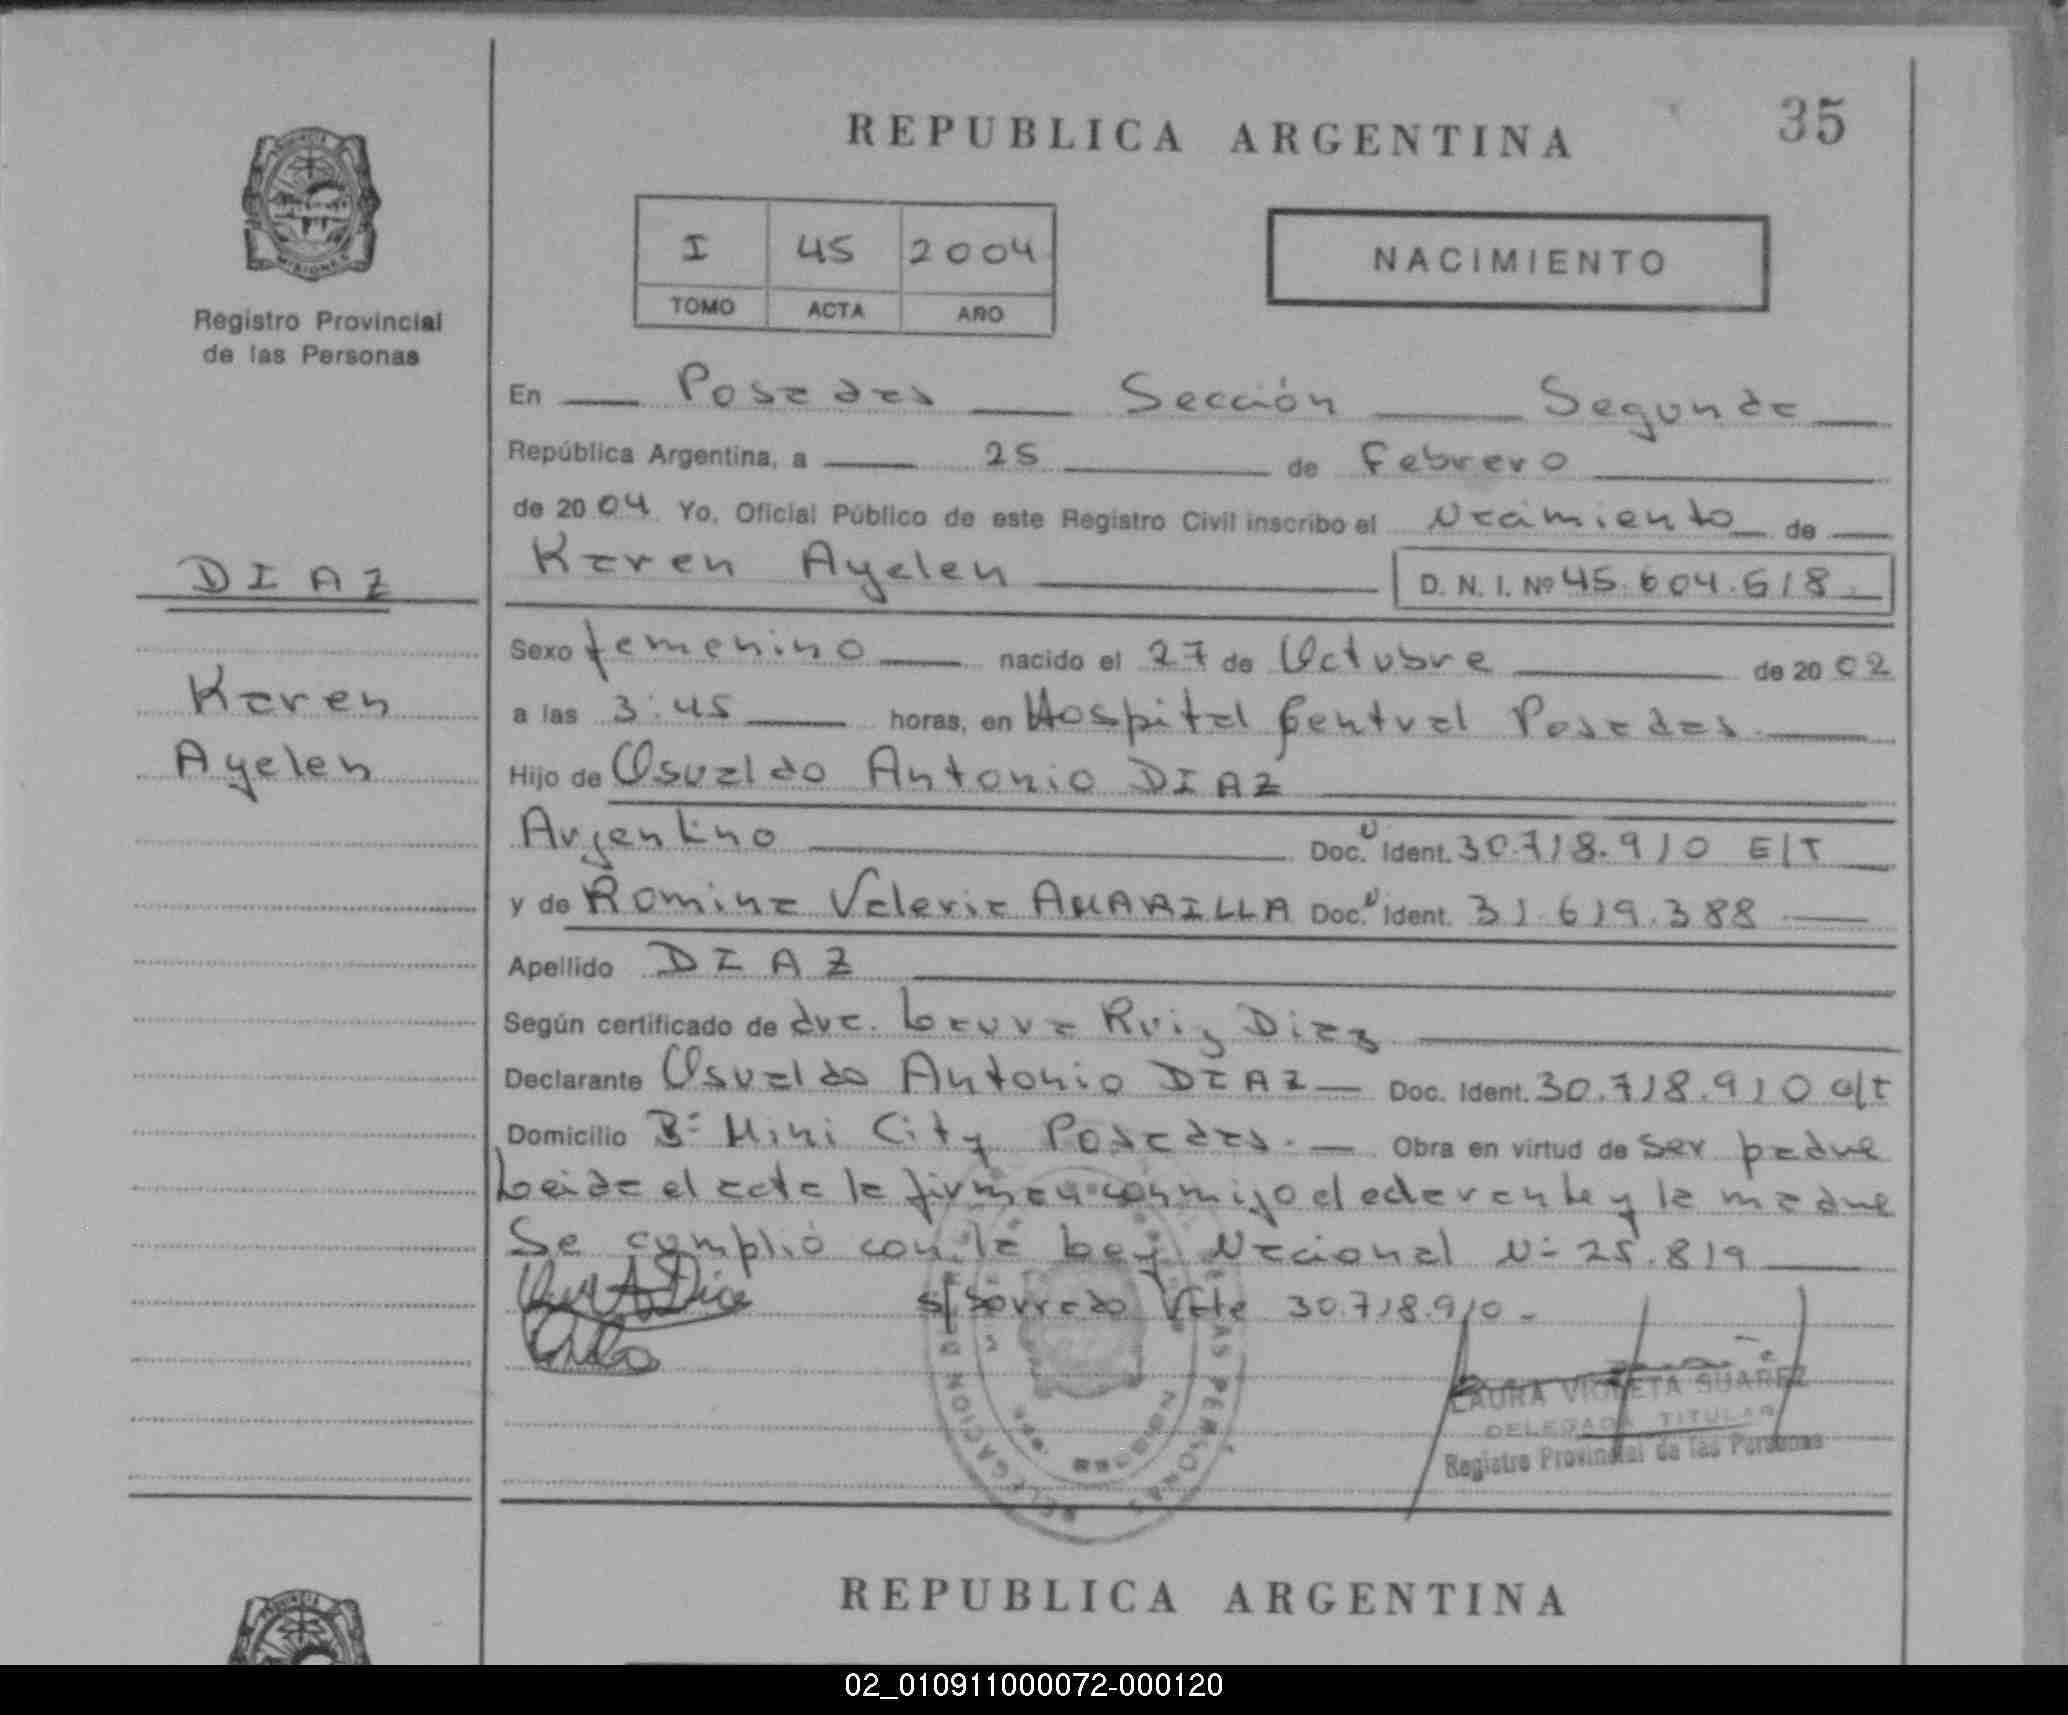 35
REPUBLICA ARGENTINA
PROVINCIA
MISIONES
Registro Provincial
de las Personas
I 45 2004
TOMO ACTA AÑO
NACIMIENTO
En Posadas Sección Segunda
República Argentina, a 25 de Febrero
de 2004 Yo, Oficial Público de este Registro Civil inscribo el Nacimiento de
Karen Ayelen D. N. I. Nº 45.604.618
DIAZ
Karen
Ayelen
Sexo femenino nacido el 27 de Octubre de 2002
a las 3:45 horas, en Hospital Central Posadas.
Hijo de Osvaldo Antonio DIAZ
Argentino Doc. Ident. 30.718.910 E/T
y de Romina Valeria AMARILLA Doc. Ident. 31.619.388
Apellido DIAZ
Según certificado de dra. Laura Ruiz Diaz
Declarante Osvaldo Antonio DIAZ Doc. Ident. 30.718.910
Domicilio Bº Mini City Posadas. Obra en virtud de ser padre
Leida el acta la firman conmigo el declarante y la madre
Se cumplió con la Ley Nacional Nº 25.819
s/borrado Vale 30.718.910-
LAURA VIOLETA SUAREZ
DELEGADA TITULAR
Registro Provincial de las Personas
REPUBLICA ARGENTINA
PROVINCIA
02_010911000072-000120